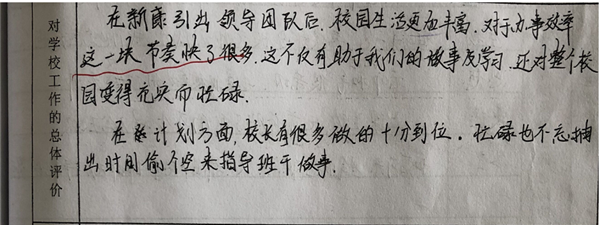 对学校工作的总体评价
在新引出领导团队后，校园生活更加丰富，对于办事效率
这一块节奏快了很多，这不仅有助于我们的做事及学习，还对整个校
园变得充实而忙碌．
在计划方面，校长有很多做的十分到位．忙碌也不忘抽
出时间偷个空来指导班干做事．